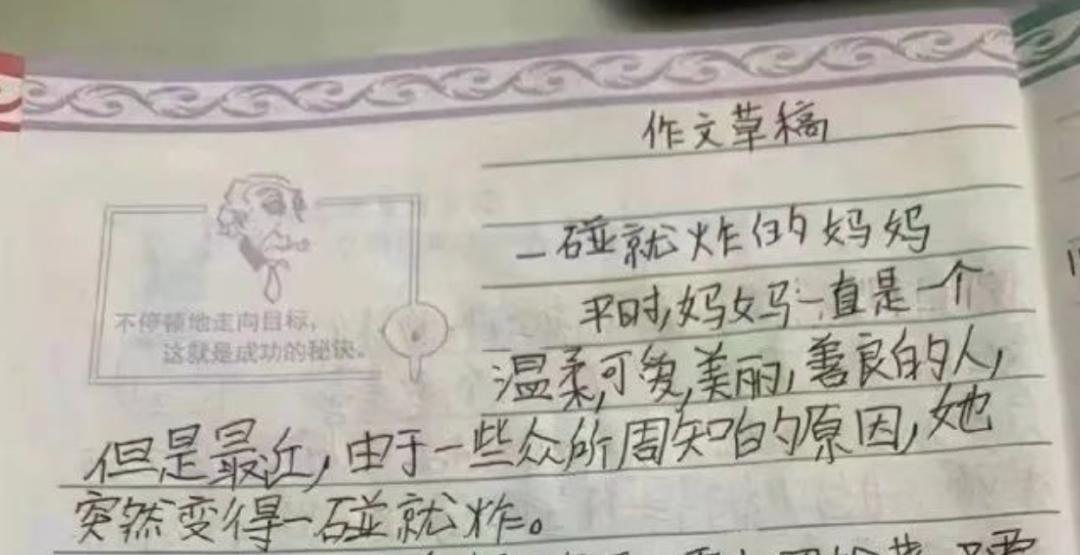 作文草稿
一碰就炸的妈妈
平时,妈妈一直是一个
温柔,可爱,美丽,善良的人,
不停顿地走向目标,
这就是成功的秘诀。
但是最近,由于一些众所周知的原因,她
突然变得一碰就炸。